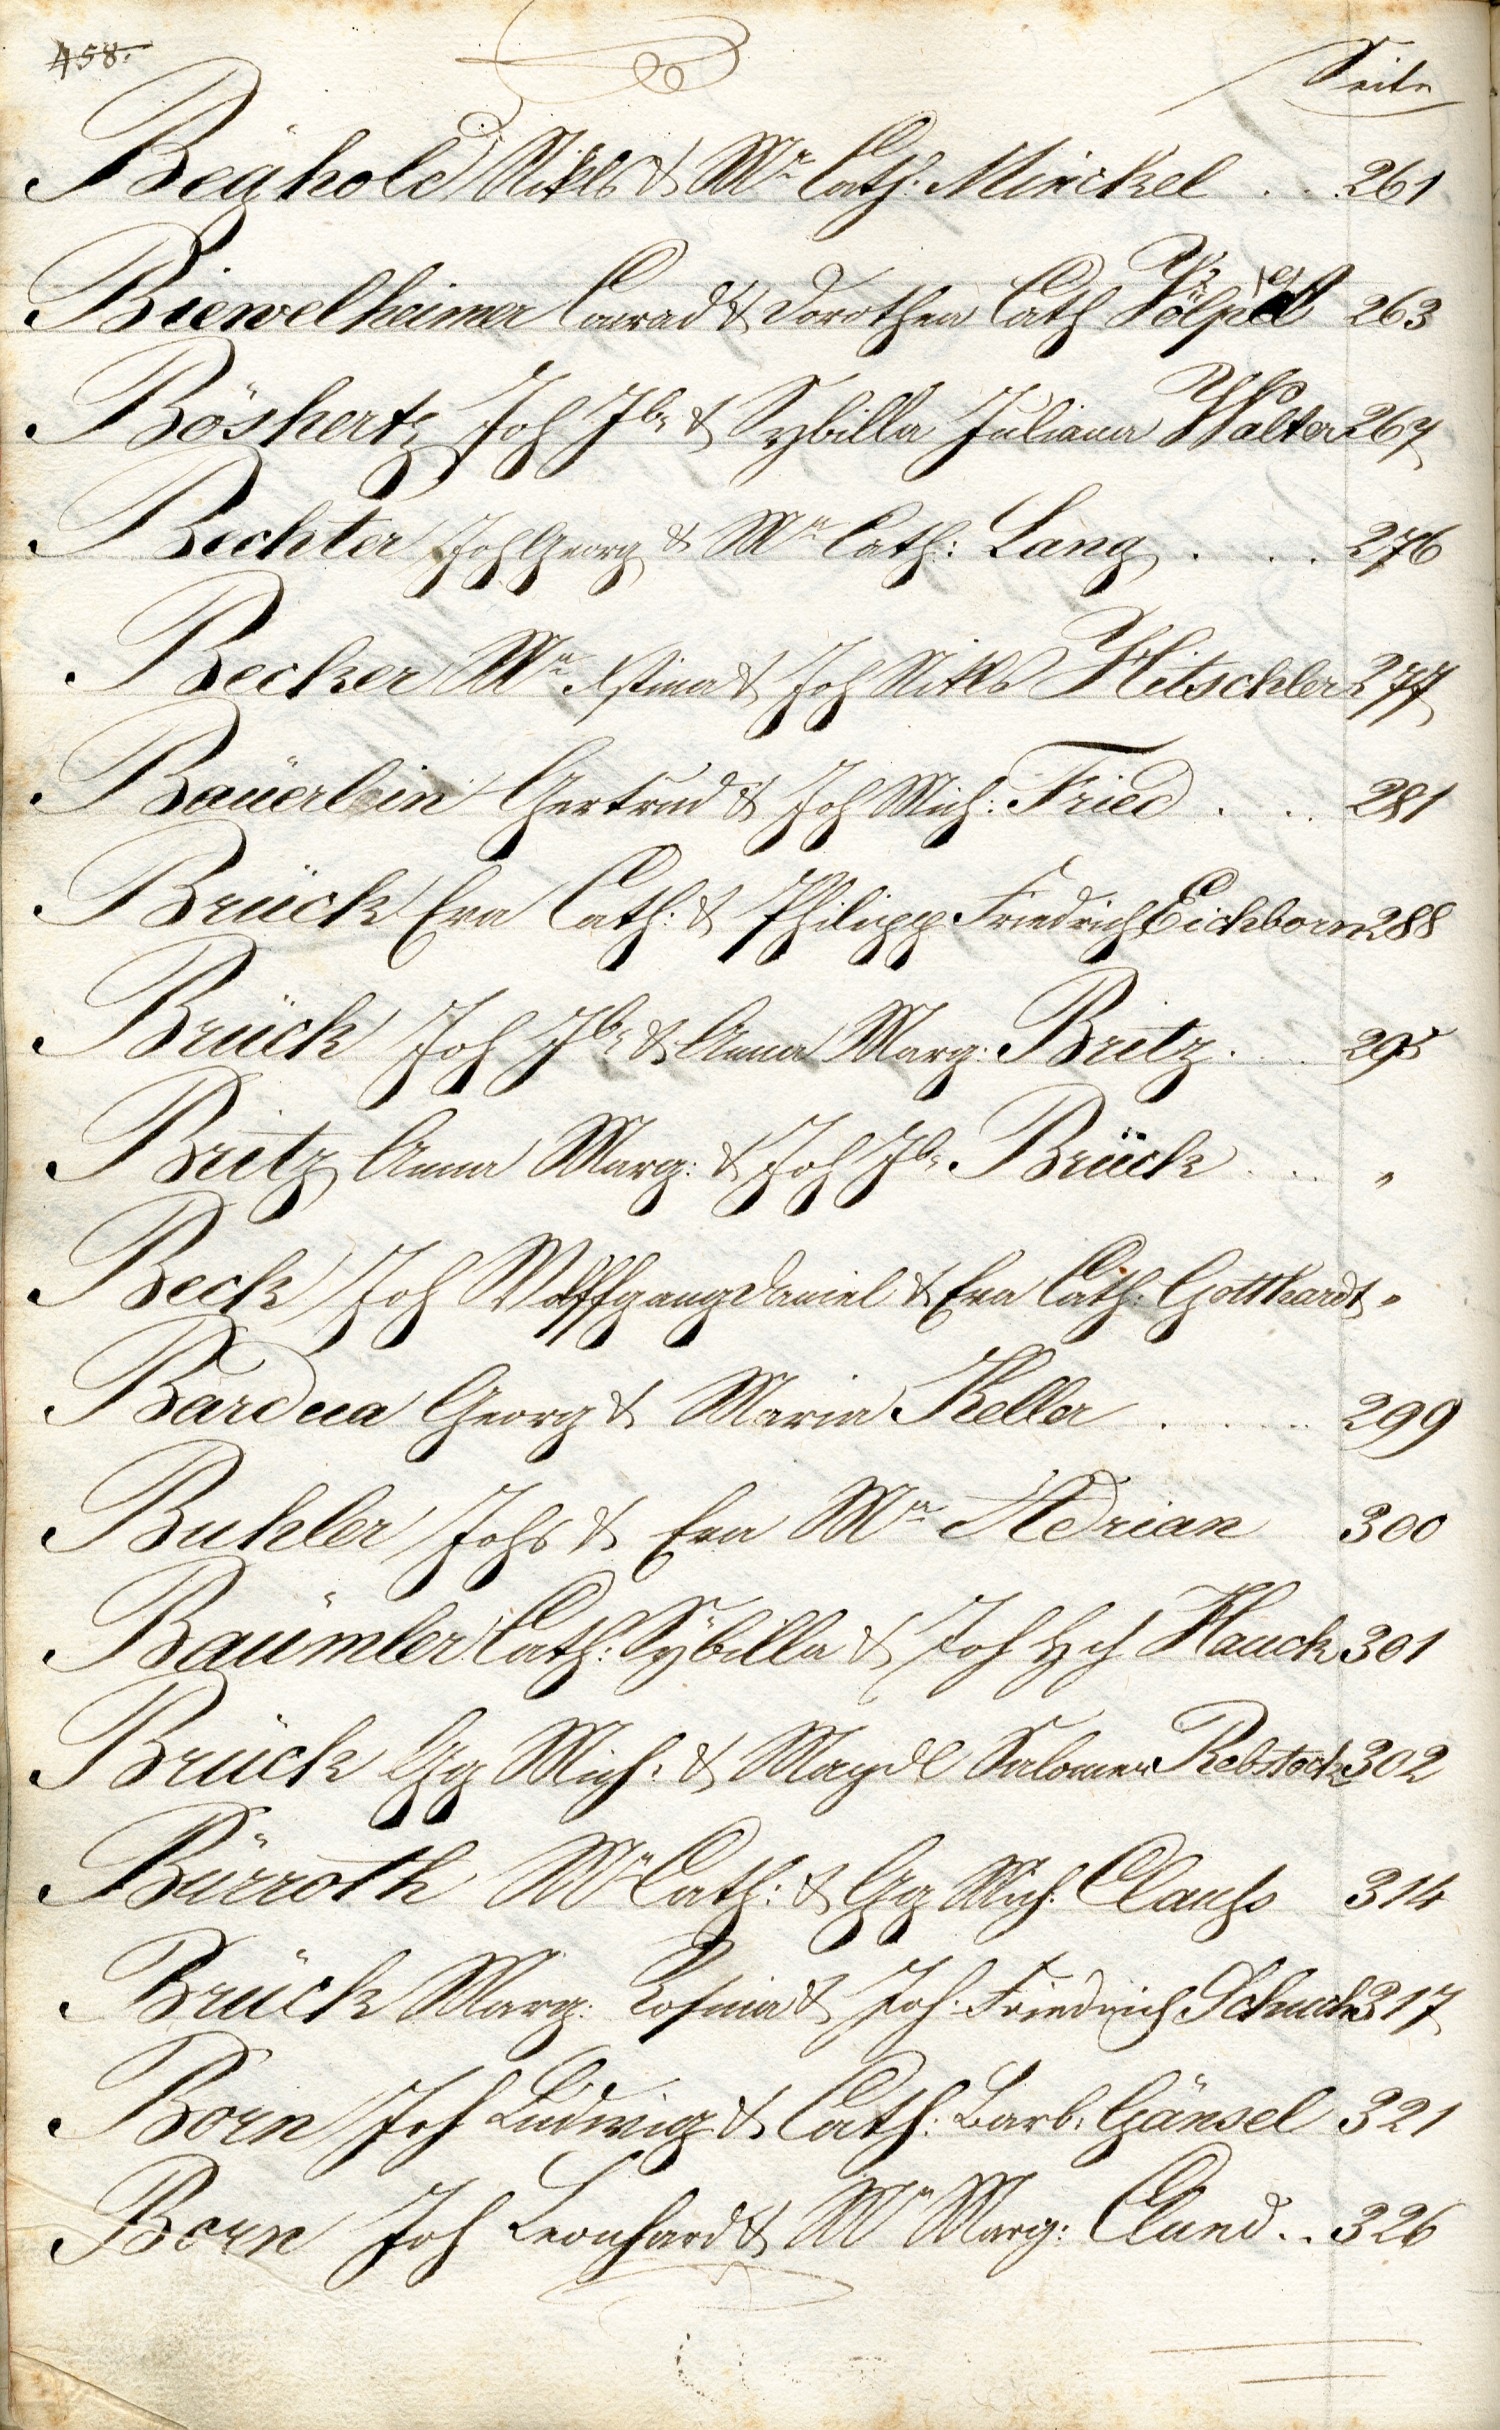 458.
Seite
Beÿhold Nikls & Mª Cath: Minckel . . . 261
Biewelheimer Conrad & Dorothea Cath Völpel 263
Böshertz Joh Jb. & Sybilla Juliana Walter 267
Bechter Joh Georg & Mª Cath: Lang . . . 276
Becker Mª Xstina & Joh Nikls Hitschler 277
Baüerlein Gertrud & Joh Mich: Fried . . . 281
Brück Eva Cath: & Philipp Friedrich Eichborn 288
Brück Joh Jb. & Anna Marg: Britz . . . 295
Britz Anna Marg: & Joh Jb. Brück . . . "
Beck Joh Wolffgang Daniel & Eva Cath: Gotthardt "
Bardua Georg & Maria Keller . . . . 299
Buhler Johs & Eva Mª Adrian 300
Baümler Cath: Sÿbilla & Joh Hch Hauck 301
Brück Gg Mich: & Magdl Salomea Rebstock 302
Bürroth Mª Cath: & Gg Mich: Clauß 314
Brück Marg: Rosina & Joh: Friedrich Schuck 317
Born Joh Ludwig & Cath: Barb: Gänsel 321
Born Joh Leonhard & Mª Marg: Clund . . 326